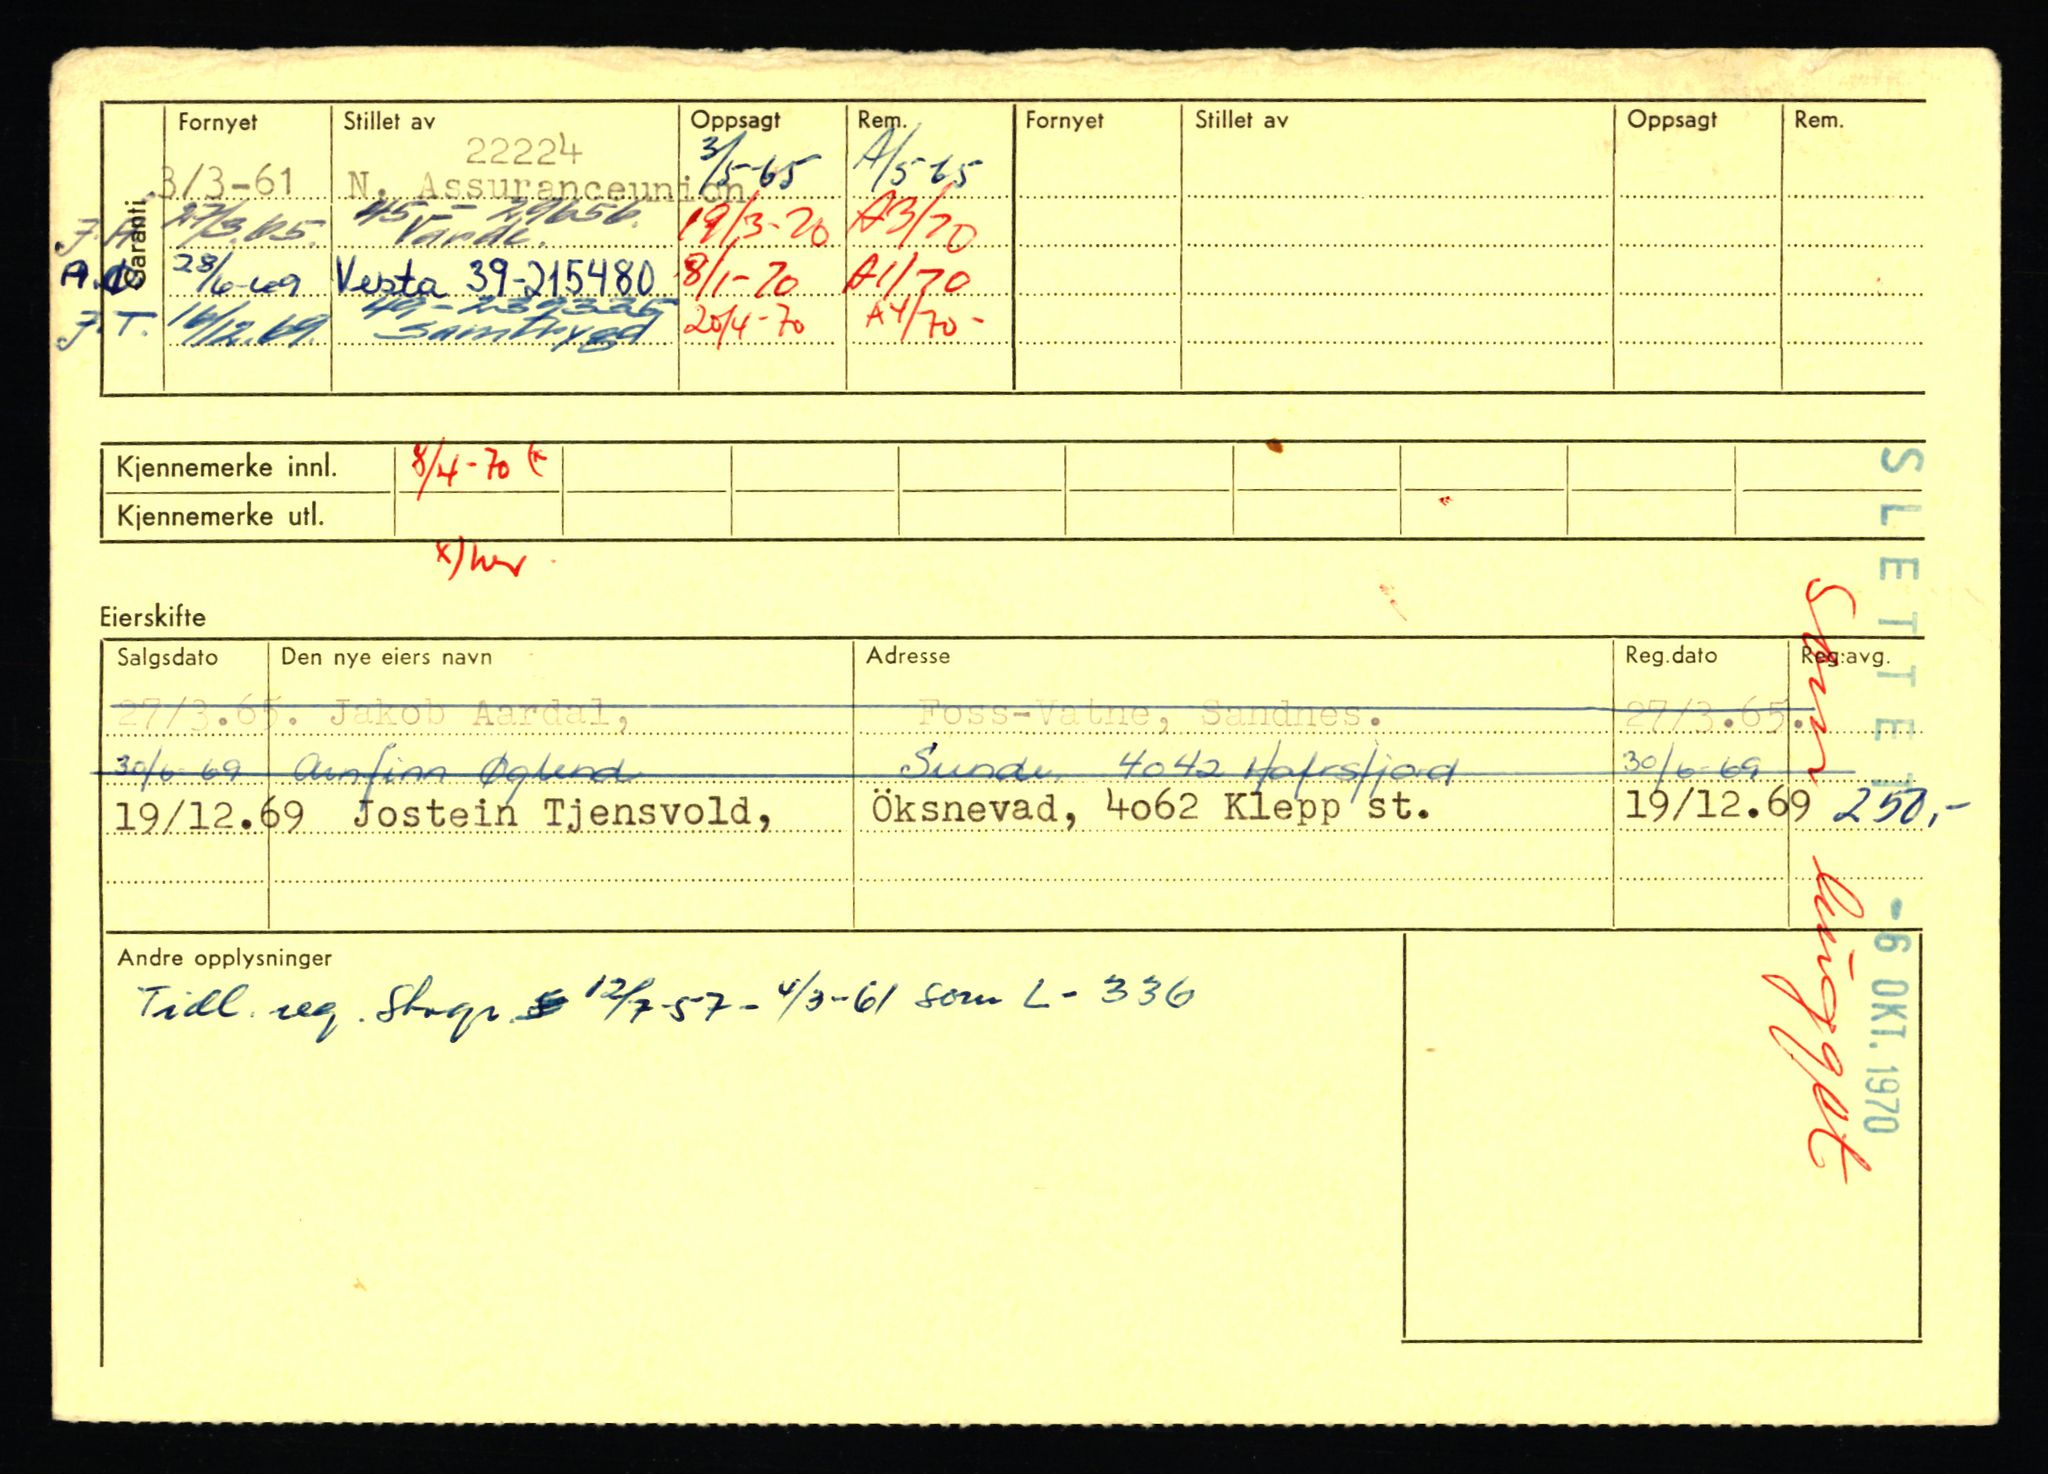 Garanti
Fornyet Stillet av Oppsagt Rem. Fornyet Stillet av Oppsagt Rem.
22224
3/3-61 N. Assuranceunion 3/5-65 A/5-65
45 - 29656.
J.A. 27/3.65. 19/3-70 A3/70
28/6-69 Vesta 39-215480 8/1-70 A1/70
J.T. 16/12.69. Samtrygd 20/4-70 A4/70-
Kjennemerke innl. 8/4-70 (x
Kjennemerke utl.
x) her
Eierskifte
Salgsdato Den nye eiers navn Adresse Reg.dato Reg.avg.
27/3.65. Jakob Aardal, Foss-Vatne, Sandnes. 27/3.65.
30/6-69 Arnfinn Øglend Sunde 4042 Hafrsfjord 30/6-69
19/12.69 Jostein Tjensvold, Öksnevad, 4062 Klepp st. 19/12.69 250,-
Andre opplysninger
Tidl. reg. 12/7-57 - 4/3-61 som L - 336
SLETTET
-6 OKT. 1970